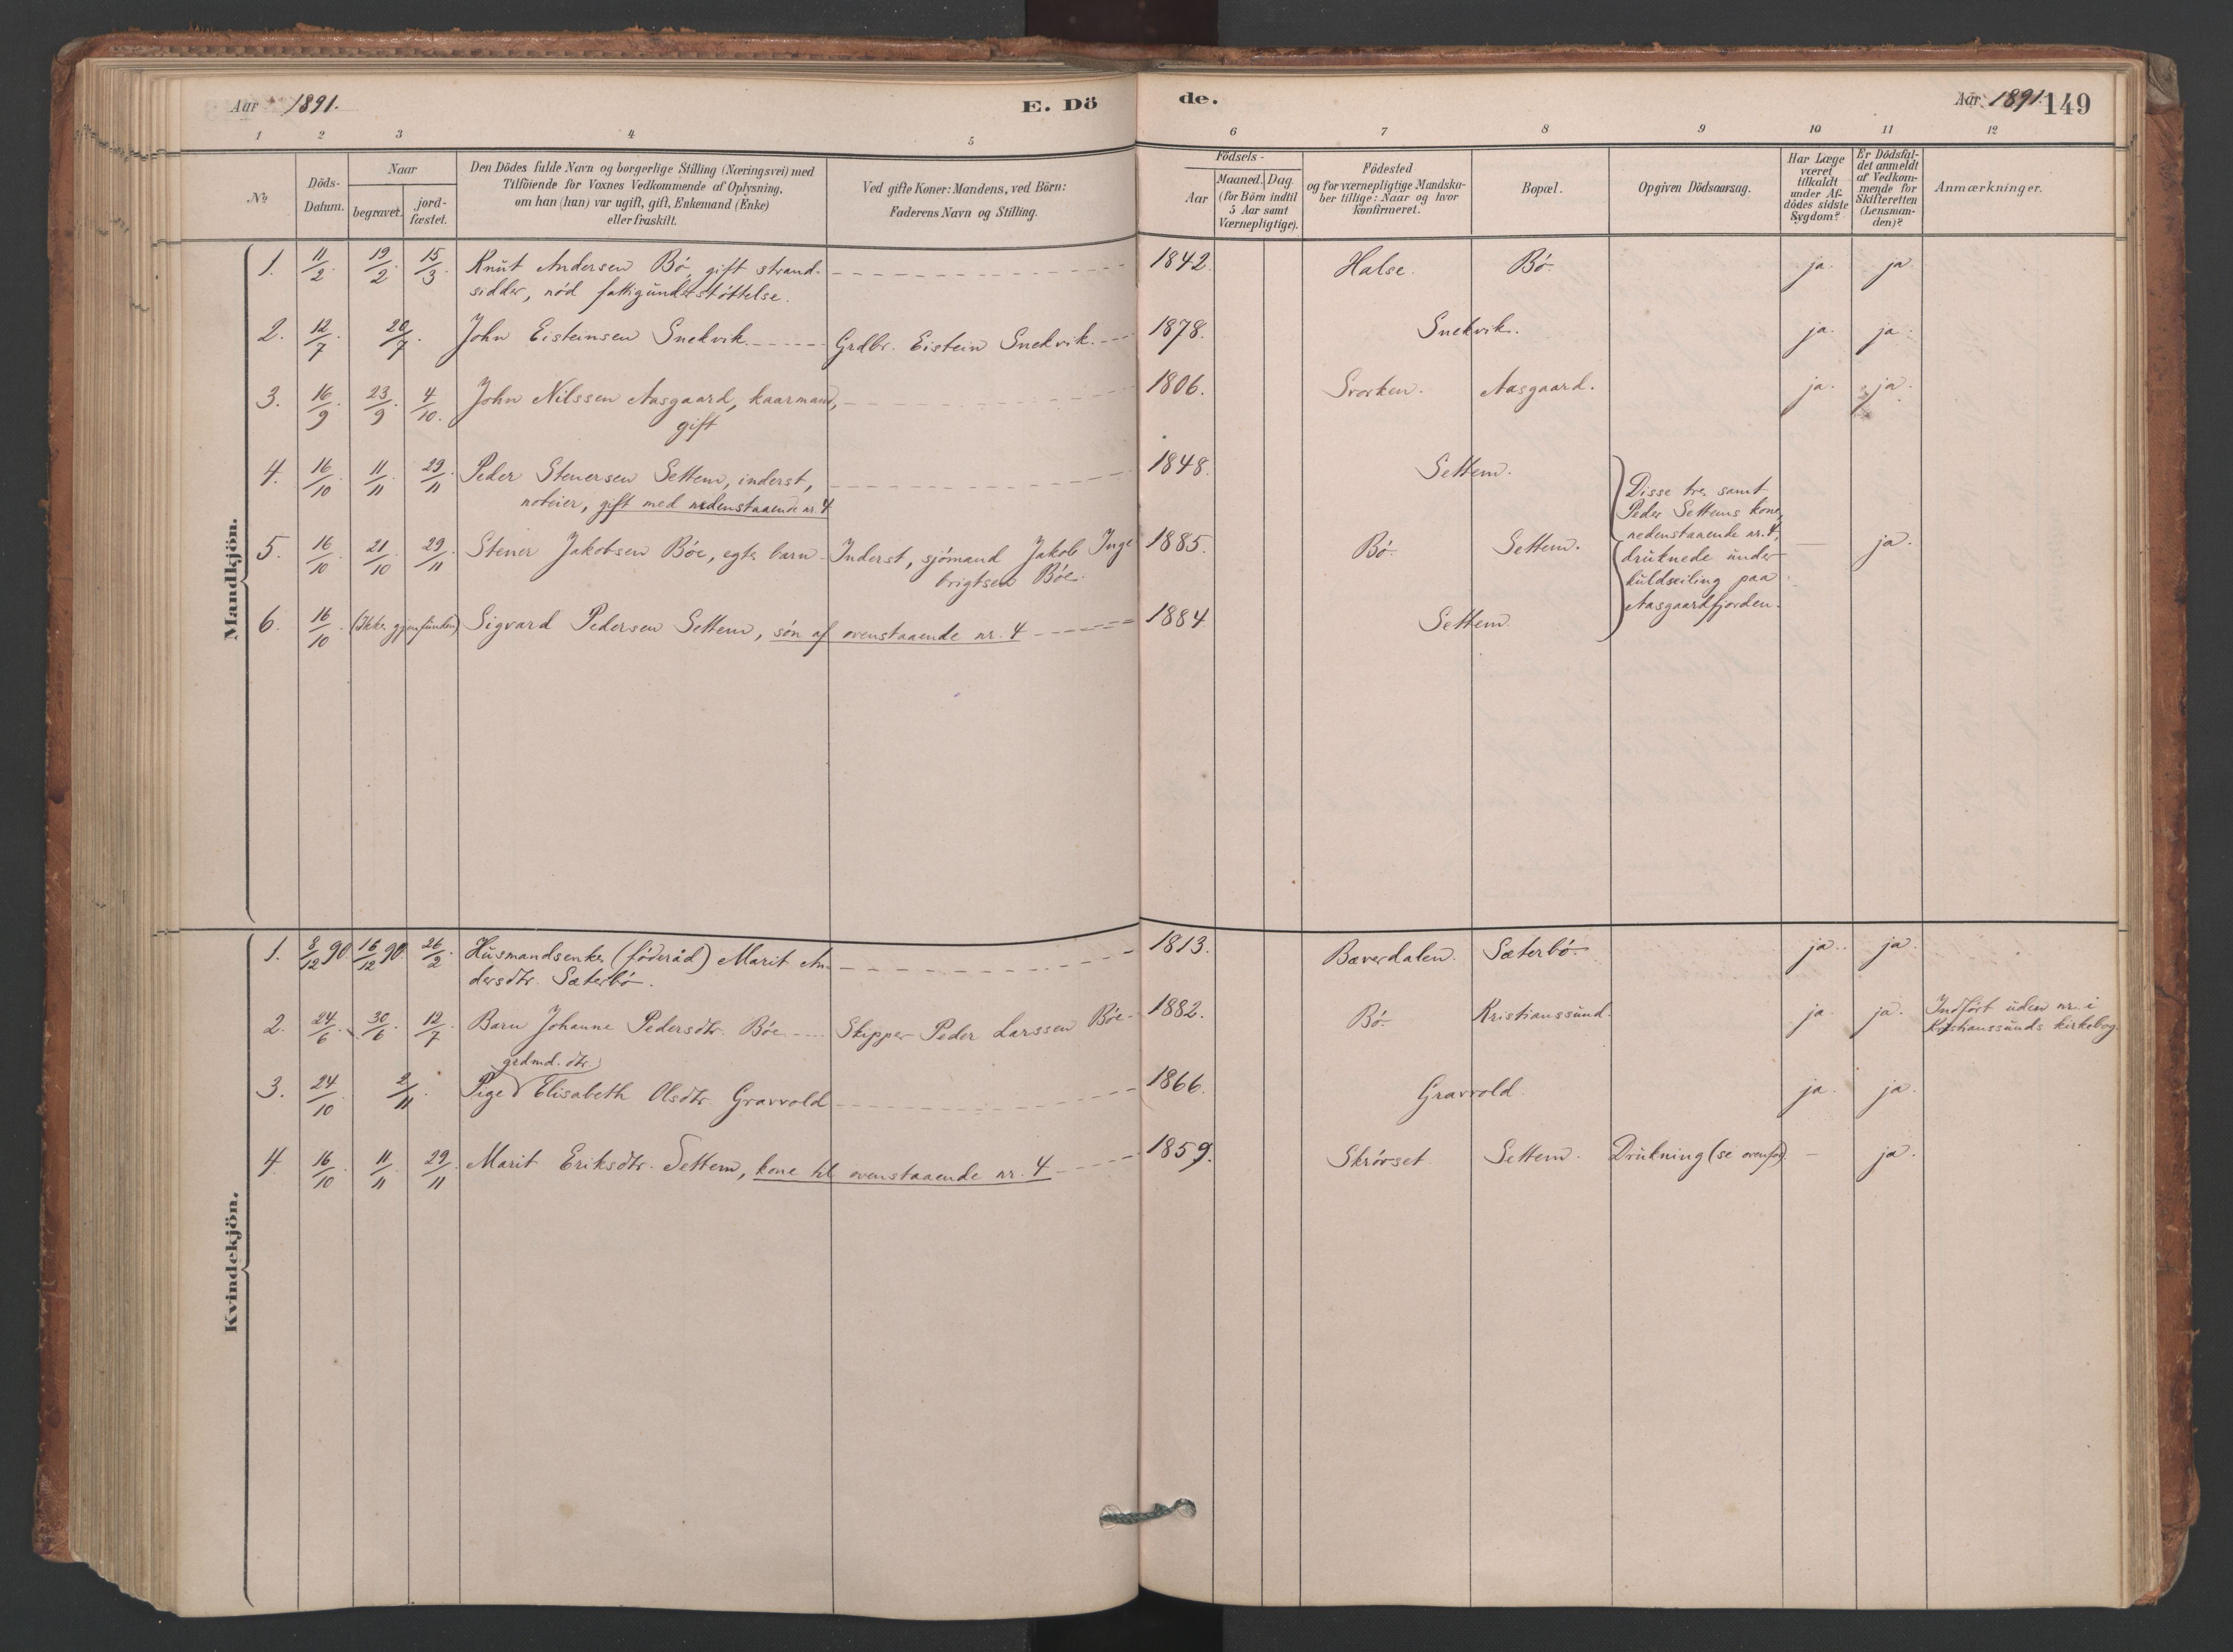 Aar 1891. E. Dö de. Aar 1891. 149
1 2 3 4 5 6 7 8 9 10 11 12
No. Döds-Datum. Naar begravet. jord-fæstet.
Den Dödes fulde Navn og borgerlige Stilling (Næringsvei) med
Tilföiende for Voxnes Vedkommende af Oplysning,
om han (hun) var ugift, gift, Enkemand (Enke)
eller fraskilt.
Ved gifte Koner: Mandens, ved Börn:
Faderens Navn og Stilling.
Födsels-
Aar Maaned. Dag.
(for Börn indtil
5 Aar samt
Værnepligtige).
Födested
og for værnepligtige Mandska-
ber tillige: Naar og hvor
konfirmeret.
Bopæl.
Opgiven Dödsaarsag.
Har Læge
været
tilkaldt
under Af-
dödes sidste
Sygdom?
Er Dödsfal-
det anmeldt
af Vedkom-
mende for
Skifteretten
(Lensman-
den)?
Anmærkninger.
Mandkjön.
1. 11/2 19/2 15/3 Knut Andersen Bö, gift strand- 1842. Halse. Bö. ja. ja
sidder, nöd fattigunderstöttelse.
2. 12/7 20/7 John Eisteinsen Snekvik Grdbr. Eistein Snekvik. 1878. Snekvik. ja. ja.
3. 16/9 23/9 4/10 John Nilssen Aasgaard, kaarmand, 1806. Svorken. Aasgaard. ja. ja.
gift
4. 16/10 11/11 29/11 Peder Stenersen Settem, inderst, 1848. Settem.
noteier, gift med nedenstaaende nr. 4
Disse tre, samt
Peder Settems kone,
nedenstaaende nr. 4,
druknede under
kuldseiling paa
Aasgaardfjorden.
5. 16/10 21/10 29/11 Stener Jakobsen Böe, egte barn Inderst, sjömand Jakob Inge 1885. Bö. Settem. – ja.
brigtsen Böe.
6. 16/10 (Ikke gjenfunden) Sigvard Pedersen Settem, sön af ovenstaaende nr. 4 1884. Settem.
Kvindekjön.
1. 8/12 90 16/12 90 26/2 Husmandsenke (föderåd) Marit An- 1813. Bæverdalen. Sæterbö. ja. ja.
dersdtr. Sæterbö.
2. 24/6 30/6 12/7 Barn Johanne Pedersdtr. Böe Skipper Peder Larssen Böe 1882. Bö. Kristianssund. ja. ja. Indfört uden nr. i
Kristianssunds kirkebog.
grdmd. dtr.
3. 24/10 2/11 Pige Elisabeth Olsdtr. Gravvold 1866. Gravvold. ja. ja.
4. 16/10 11/11 29/11 Marit Eriksdtr. Settem, kone til ovenstaaende nr. 4 1859. Skrövset Settem. Drukning (se ovenfor). – ja.